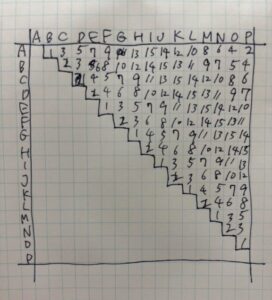 A B C D E F G H I J K L M N O P
A 1 3 5 7 9 13 15 14 12 10 8 6 4 2
B 2 3 6 8 10 12 14 15 13 11 9 7 5 4
C 1 4 5 7 9 11 13 15 14 12 10 8 6
D 2 4 6 8 10 12 14 15 13 11 9 7
E 1 3 5 7 9 11 13 15 14 12 10
F 2 3 6 8 10 12 14 15 13 11
G 1 4 5 7 9 11 13 15 14
H 2 4 6 8 10 12 14 15
I 1 3 5 7 9 11 13
J 2 3 6 8 10 12
K 1 4 5 7 9
L 2 4 6 8
M 1 3 5
N 2 3
O 1
P